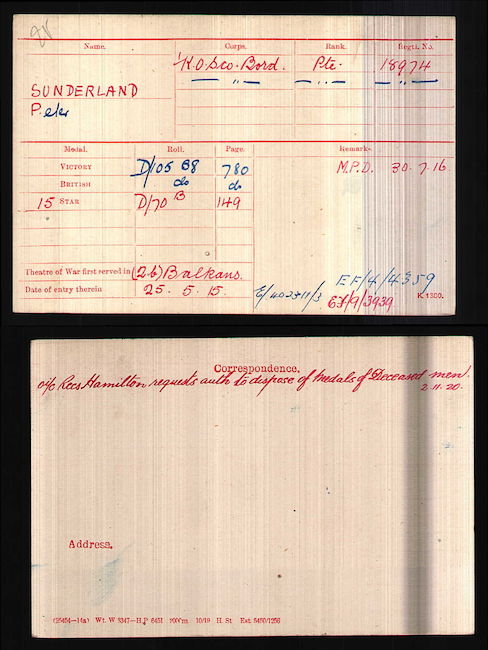 Name. Corps. Rank. Regtl. No.
K.O.Sco.Bord. Pte. 18974
— " — — " — — " —
SUNDERLAND
Peter
Medal. Roll. Page. Remarks.
VICTORY D/105 B8 780 M.P.D. 30.7.16.
BRITISH do do
15 STAR D/70 B 149
Theatre of War first served in (2b) Balkans.
Date of entry therein 25. 5. 15.
EF/4/4359
EF/9/3939 K 1380.
Correspondence.
o/c Recs Hamilton requests auth to dispose of medals of Deceased men.
2.11.20.
Address.
(25454—14a) Wt. W 3347—H.P 6451 10/19 H. St Est 5450/1256